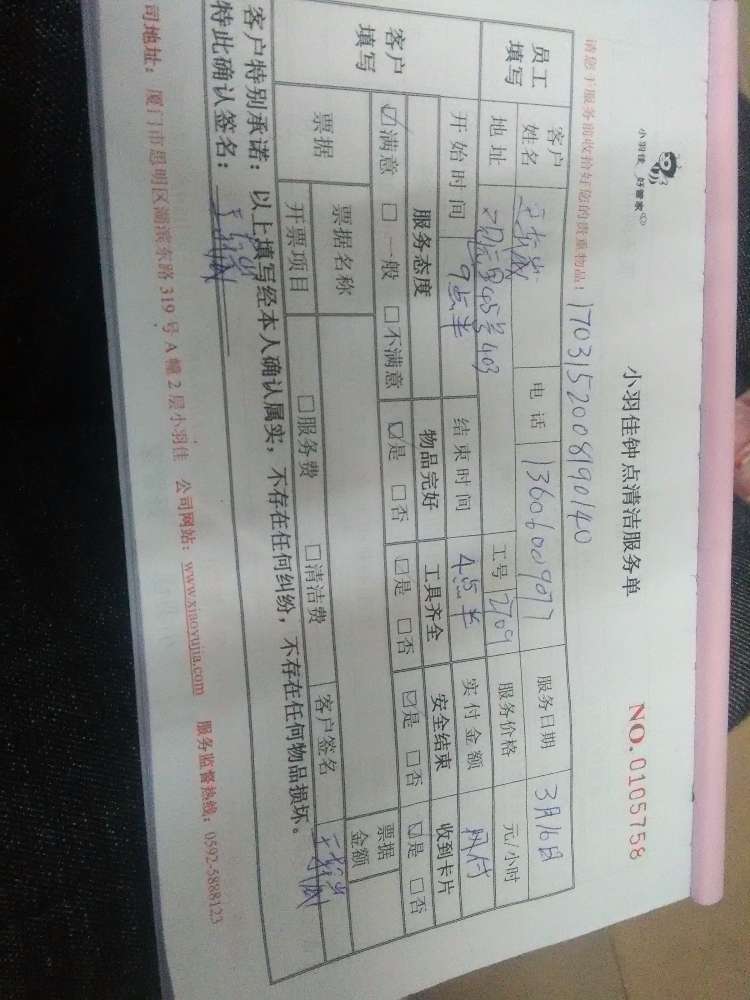 小羽佳 好管家
小羽佳钟点清洁服务单
NO.0105758
请您于服务前收拾好您的贵重物品！
1703152008190140
员工填写
客户姓名
电话 13606009077
服务日期 3月16日
地址
工号 2709
服务价格 元/小时
开始时间 9点半
结束时间 4点半
实付金额 网付
客户填写
服务态度 物品完好 工具齐全 安全结束 收到卡片
☑满意 □一般 □不满意 ☑是 □否 ☑是 □否 ☑是 □否 ☑是 □否
票据 票据名称 票据金额
开票项目 □服务费 □清洁费 客户签名
客户特别承诺：以上填写经本人确认属实，不存在任何纠纷，不存在任何物品损坏。
特此确认签名：
司地址：厦门市思明区湖滨东路319号A幢2层小羽佳 公司网站：www.xiaoyujia.com 服务监督热线：0592-5888123